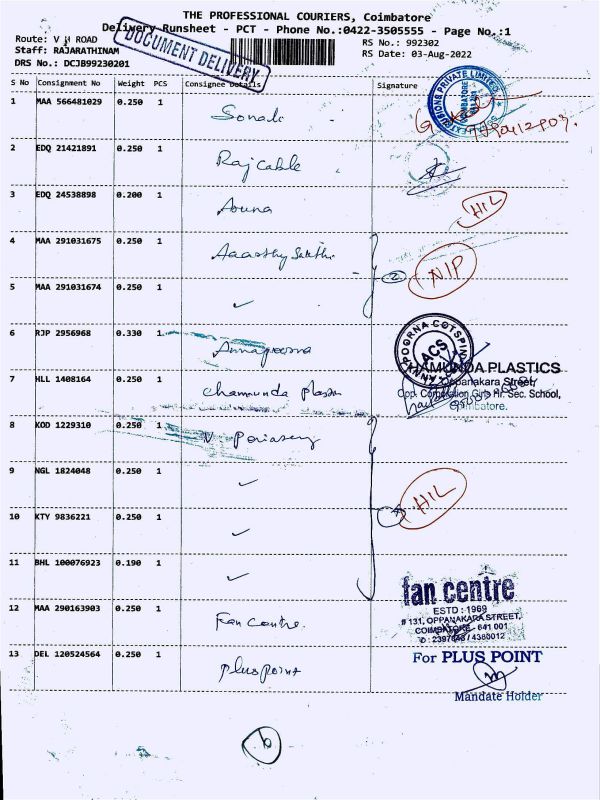 THE PROFESSIONAL COURIERS, Coimbatore
Delivery Runsheet - PCT - Phone No.:0422-3505555 - Page No.:1
Route: V H ROAD
RS No.: 992302
Staff: RAJARATHINAM
RS Date: 03-Aug-2022
DRS No.: DCJB99230201
DOCUMENT DELIVERY
S No Consignment No Weight PCS Consignee Details Signature
1 MAA 566481029 0.250 1 Sonal
2 EDQ 21421891 0.250 1 Raj Cable
3 EDQ 24538898 0.200 1 Aruna HIL
4 MAA 291031675 0.250 1
2 NIP
5 MAA 291031674 0.250 1 ✓
6 RJP 2956968 0.330 1 Annapoorna
ANNAPOORNA COTSPIN
ACS
7 HLL 1408164 0.250 1 chamunda
CHAMUNDA PLASTICS
Oppanakara Street,
Opp. Corporation Girls Hr. Sec. School,
Coimbatore.
8 KOD 1229310 0.250 1 V Periasamy
9 NGL 1824048 0.250 1 ✓
4 HIL
10 KTY 9836221 0.250 1 ✓
11 BHL 100076923 0.190 1 ✓
12 MAA 290163903 0.250 1 Fan Centre.
fan centre
ESTD : 1969
# 131, OPPANAKARA STREET,
COIMBATORE - 641 001
13 DEL 120524564 0.250 1 plus point
For PLUS POINT
Mandate Holder
6